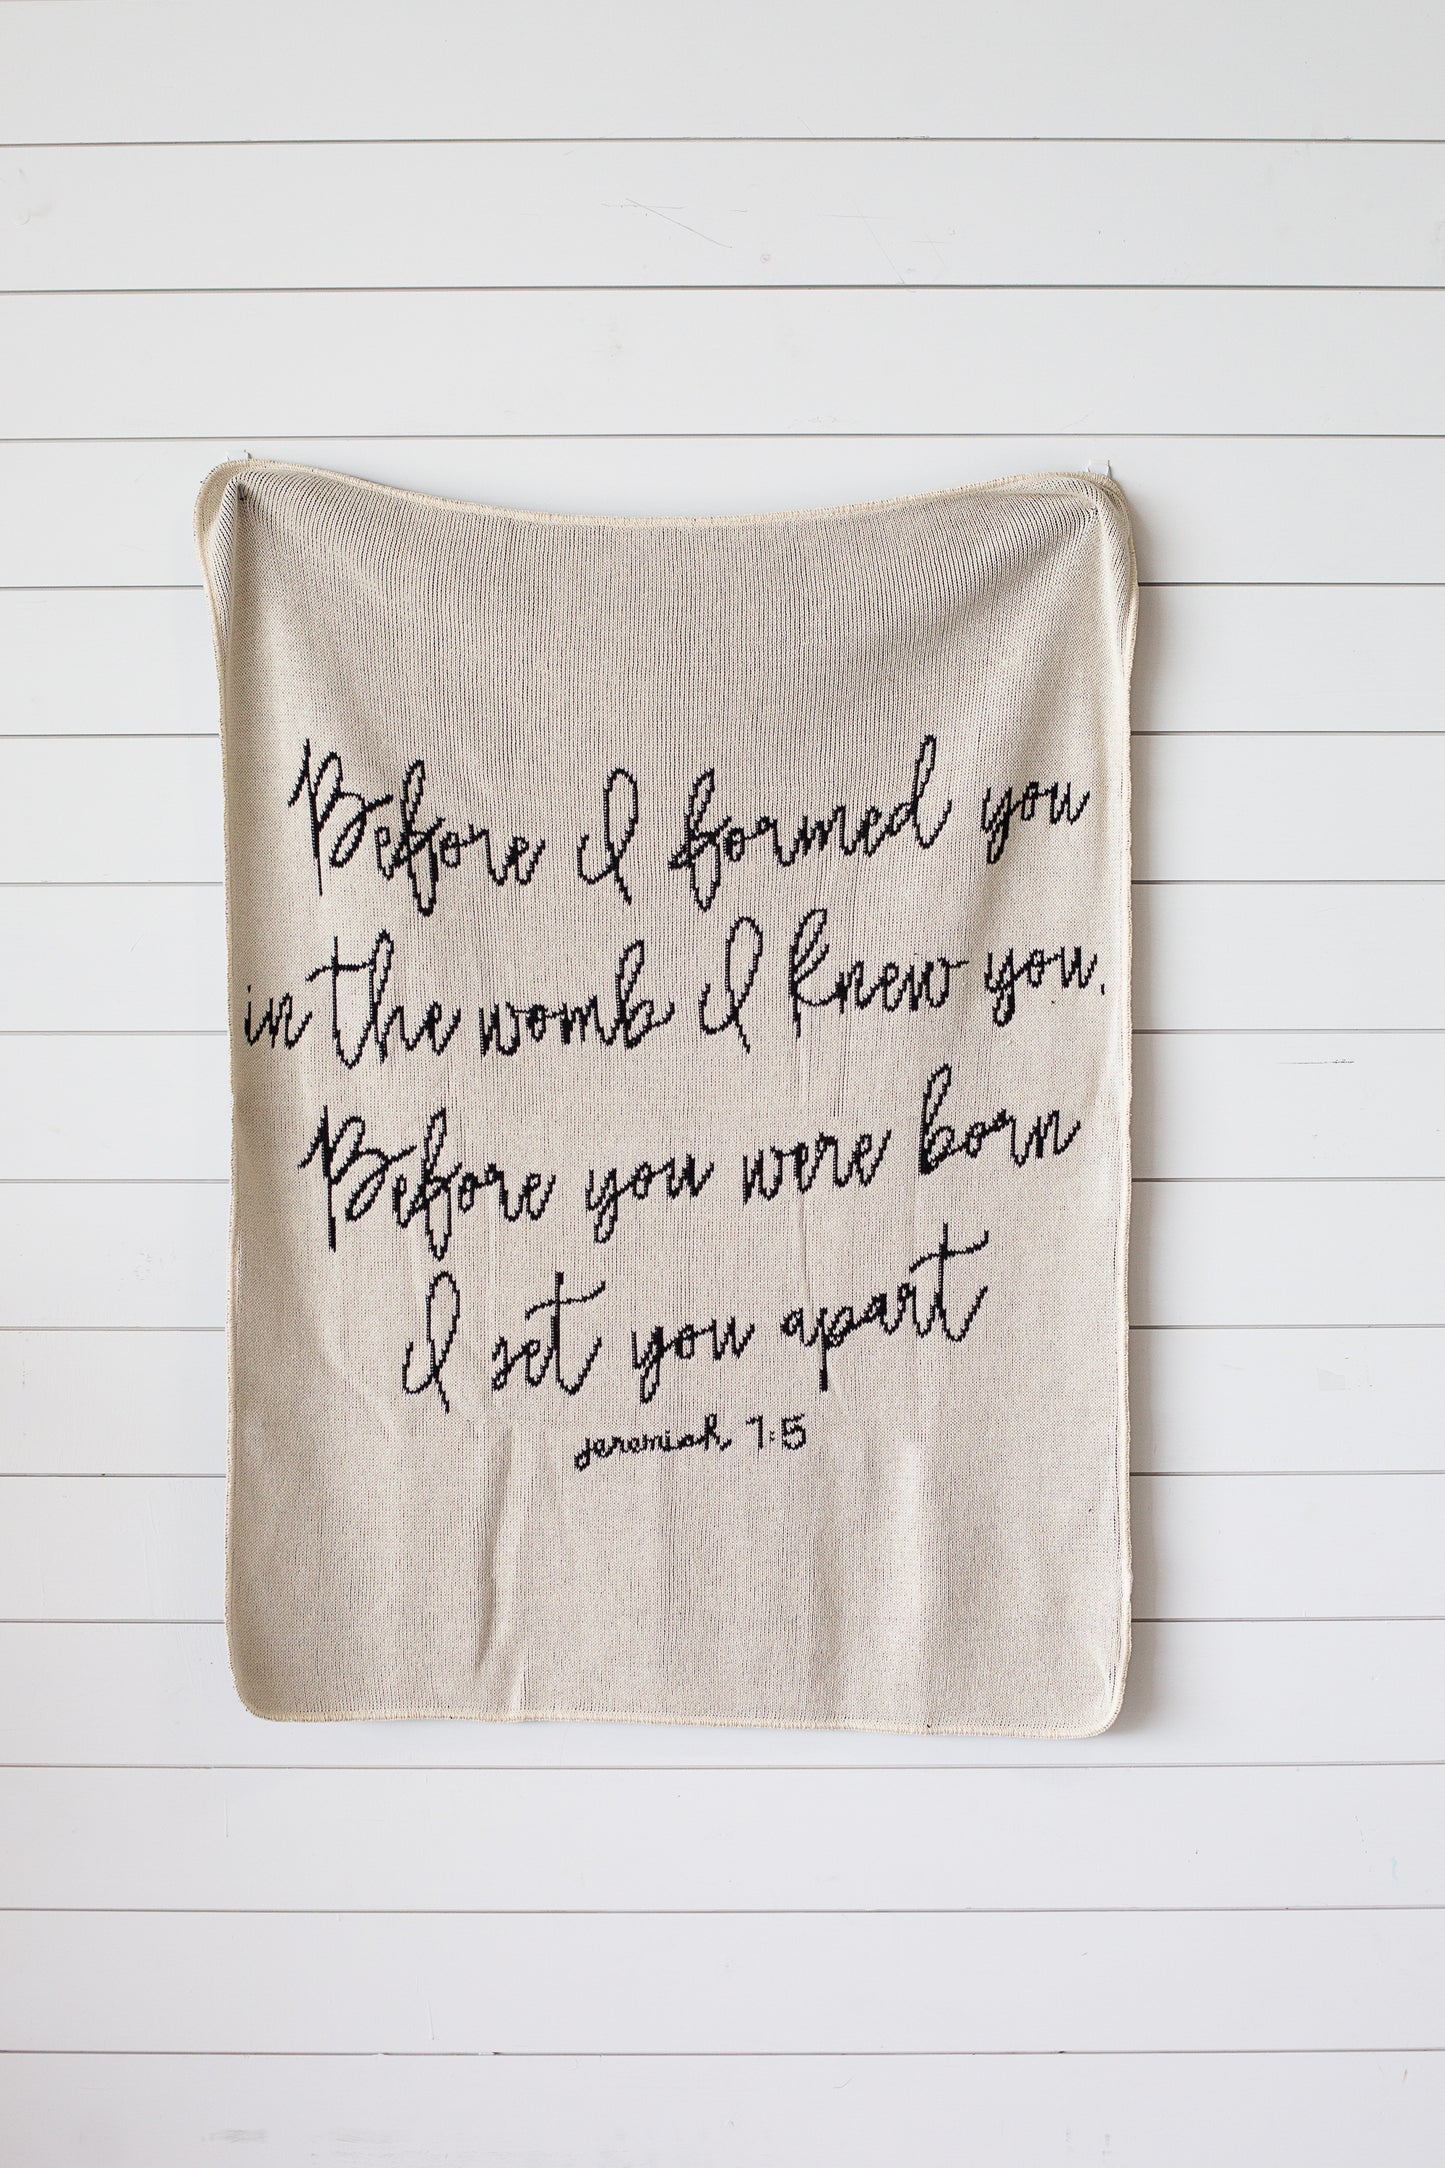 Before I formed you
in the womb I knew you.
Before you were born
I set you apart
jeremiah 1:5